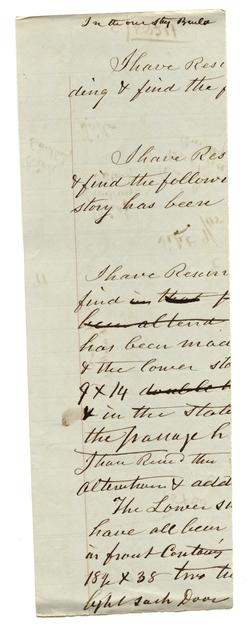 In the one Sty Build
I have Resu
ding & find the f
I have Res
& find the followi
story has been
I have Resum
find in that p
been altend
has been mad
& the lower sto
9 X 14 double h
& in the state
the passage h
I have Res the
alteration & add
The Lower s
have all been
in front Contain's
18½ X 38 two the
light sach Door